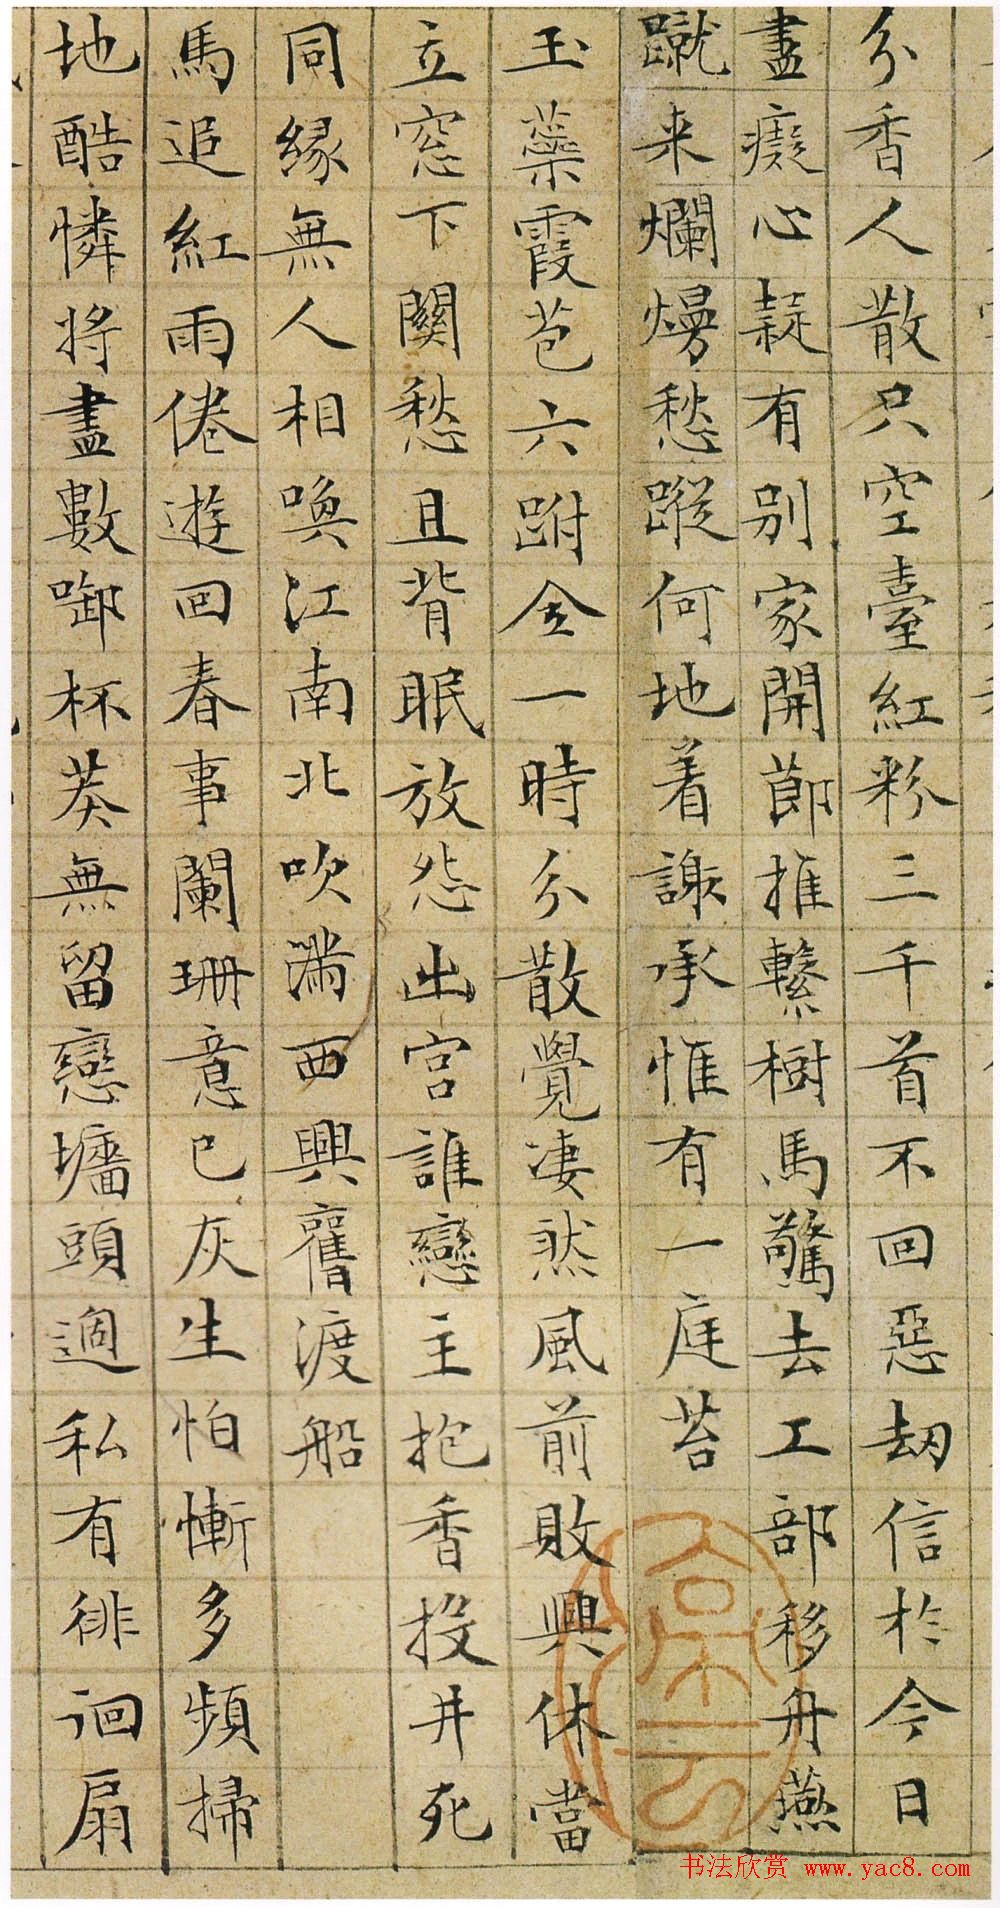 分香人散只空臺紅粉三千首不回惡劫信於今日
盡癡心疑有別家開節推繫樹馬驚去工部移舟燕
蹴来爛熳愁蹤何地着謝承惟有一庭苔
玉蘂霞苞六跗全一時分散覺凄然風前敗興休當
立窓下關愁且背眠放怨出宮誰戀主抱香投井死
同縁無人相喚江南北吹滿西興舊渡船
馬追紅雨倦遊回春事闌珊意已灰生怕慚多頻掃
地酷憐將盡數啣杯葬無留戀墻頭過私有徘徊扇
书法欣赏 www.yac8.com